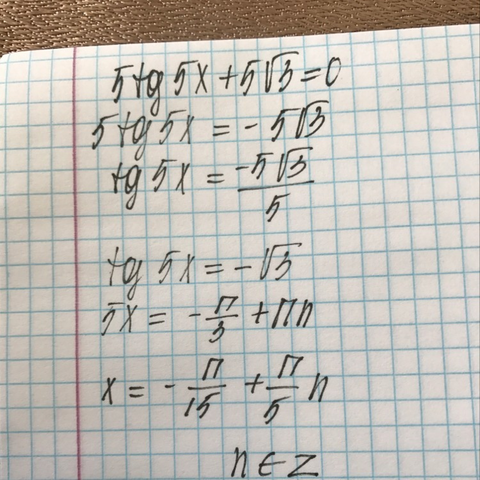 5tg 5x + 5√3 = 0
5tg 5x = -5√3
tg 5x = -5√3/5
tg 5x = -√3
5x = -π/3 + πn
x = -π/15 + π/5 n
n ∈ Z